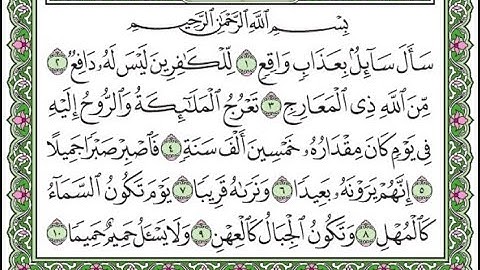 بِسْمِ ٱللَّهِ ٱلرَّحْمَٰنِ ٱلرَّحِيمِ
سَأَلَ سَآئِلٌۢ بِعَذَابٍ وَاقِعٍ ١ لِّلْكَٰفِرِينَ لَيْسَ لَهُۥ دَافِعٌ ٢
مِّنَ ٱللَّهِ ذِى ٱلْمَعَارِجِ ٣ تَعْرُجُ ٱلْمَلَٰٓئِكَةُ وَٱلرُّوحُ إِلَيْهِ
فِى يَوْمٍ كَانَ مِقْدَارُهُۥ خَمْسِينَ أَلْفَ سَنَةٍ ٤ فَٱصْبِرْ صَبْرًا جَمِيلًا
٥ إِنَّهُمْ يَرَوْنَهُۥ بَعِيدًا ٦ وَنَرَىٰهُ قَرِيبًا ٧ يَوْمَ تَكُونُ ٱلسَّمَآءُ
كَٱلْمُهْلِ ٨ وَتَكُونُ ٱلْجِبَالُ كَٱلْعِهْنِ ٩ وَلَا يَسْـَٔلُ حَمِيمٌ حَمِيمًا ١٠